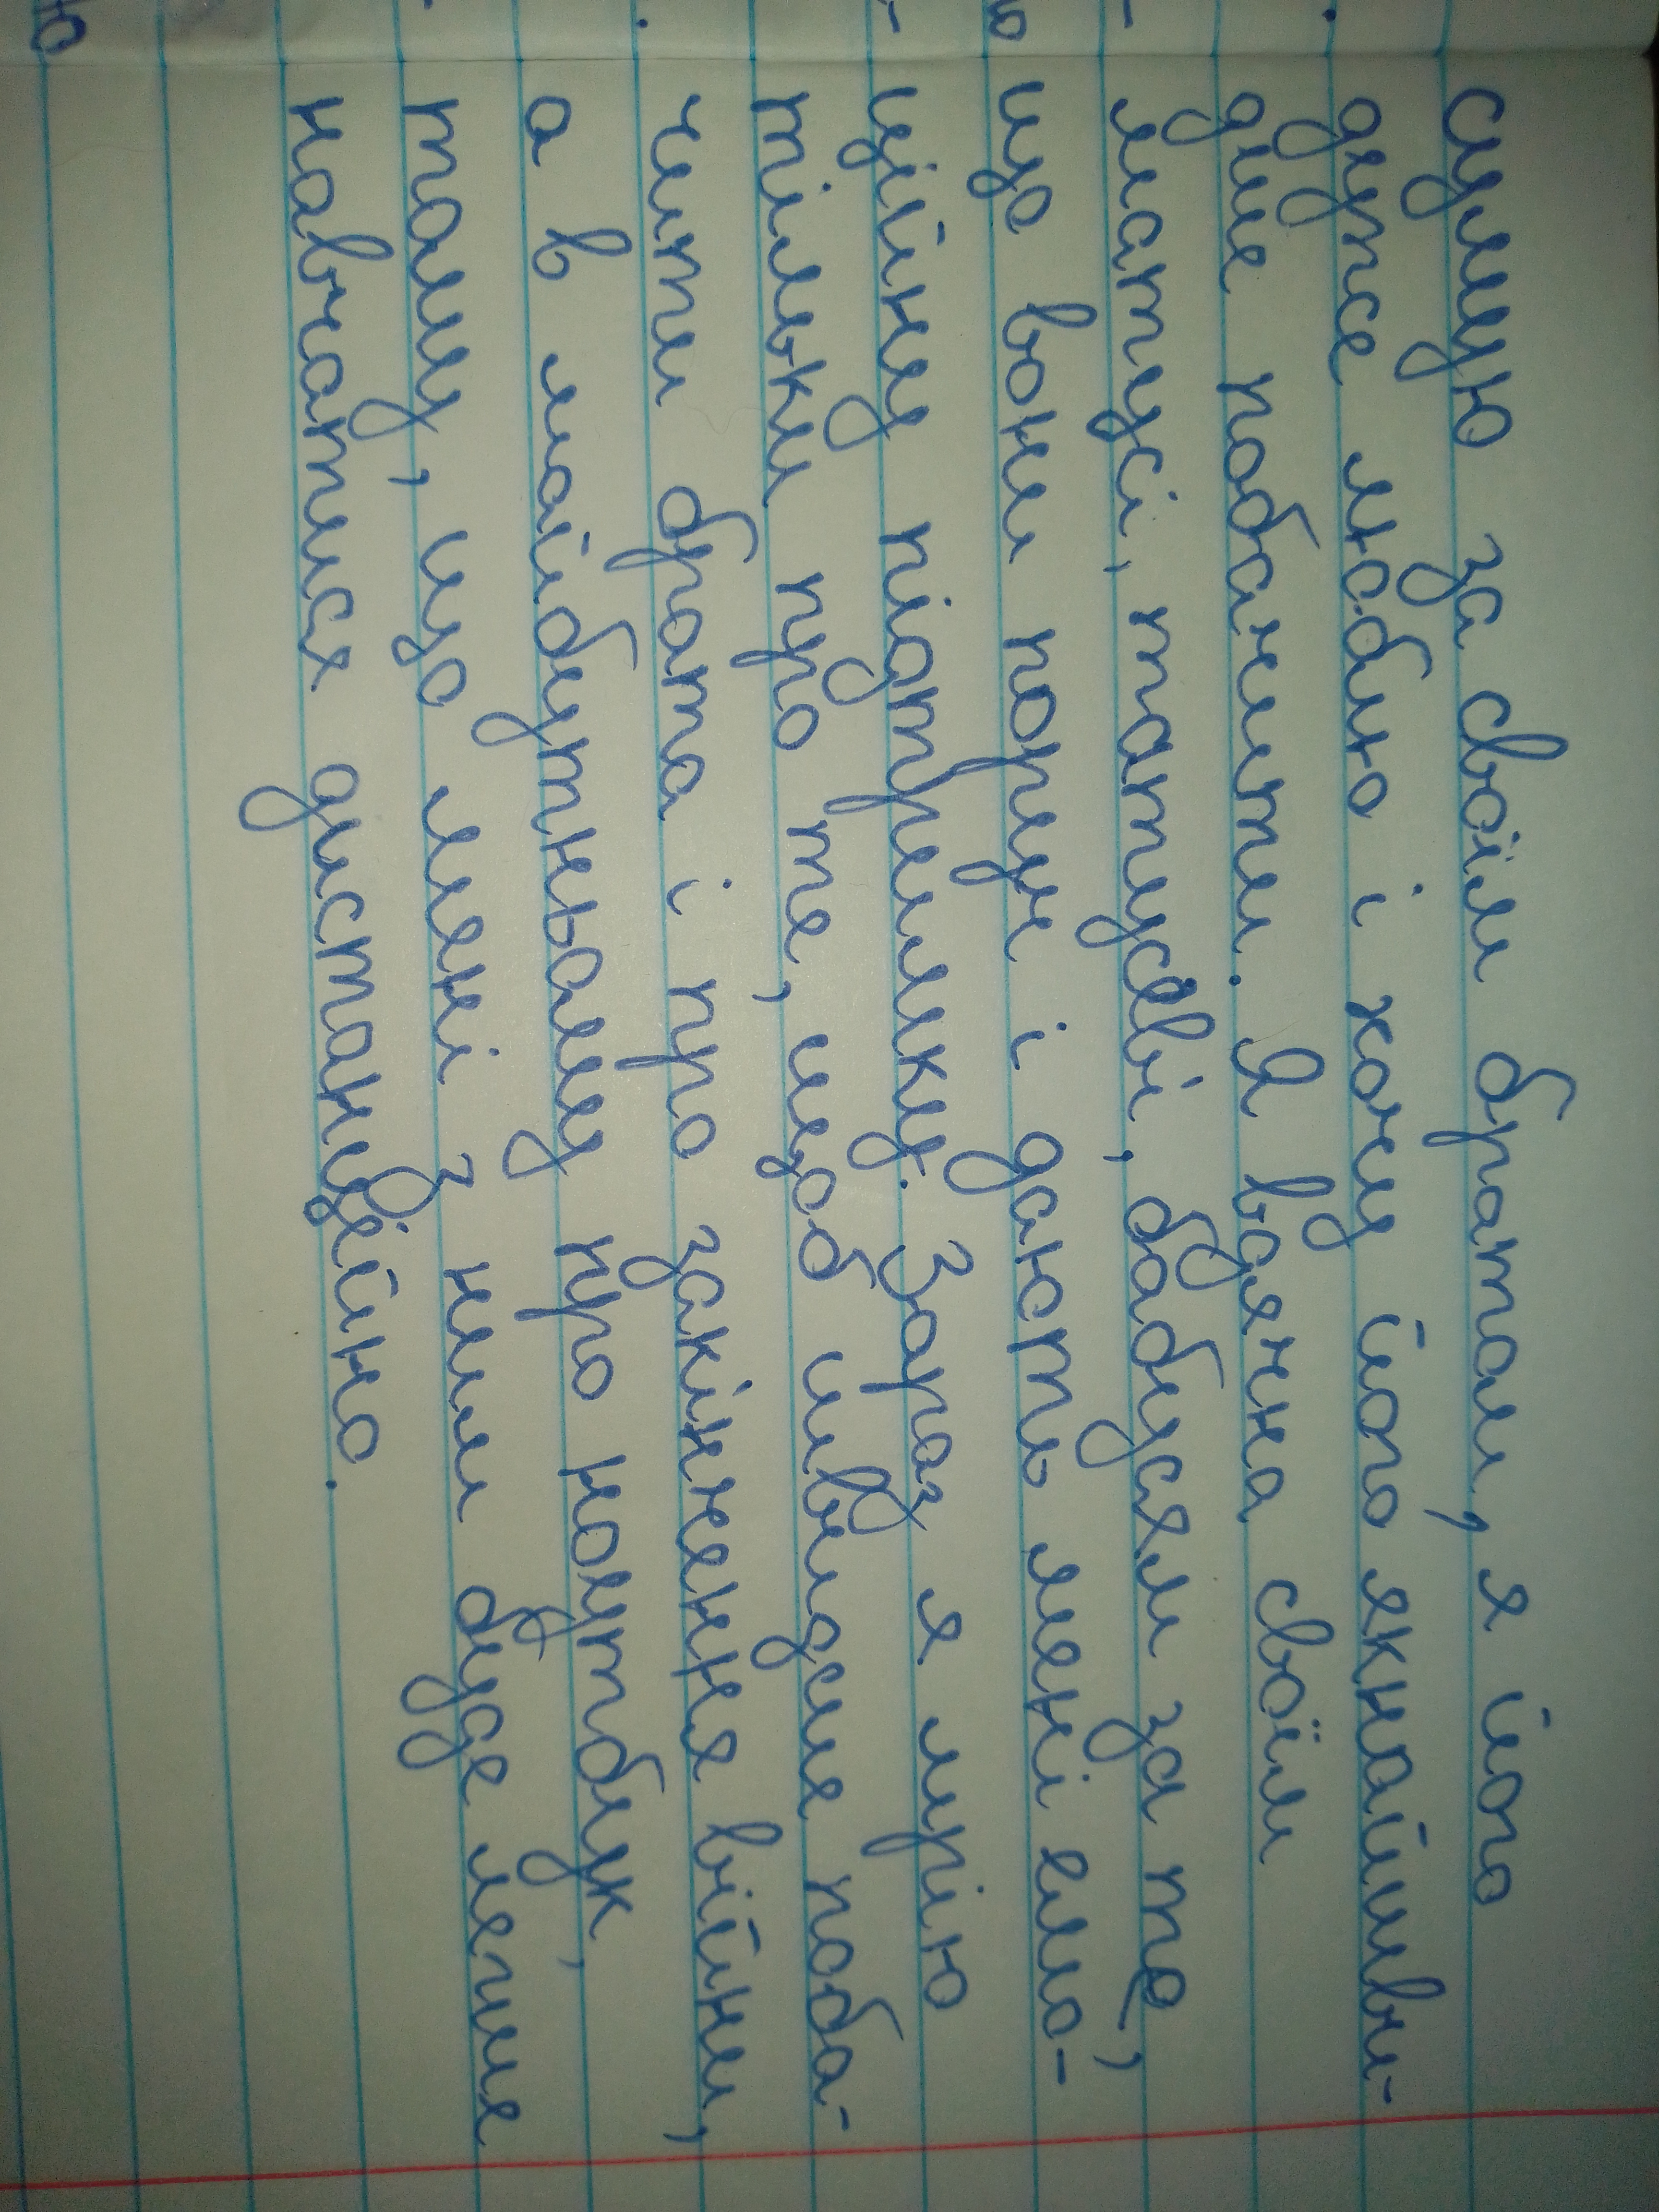 сумую за своїм братом, я його
дуже люблю і хочу його якнайшви-
дше побачити. Я вдячна своїм
матусі, татусеві, бабусям за те,
що вони поруч і дають мені емо-
ційну підтримку. Зараз я мрію
тільки про те, щоб швидше поба-
чити брата і про закінчення війни,
а в майбутньому про ноутбук,
тому, що мені з ним буде легше
навчатися дистанційно.